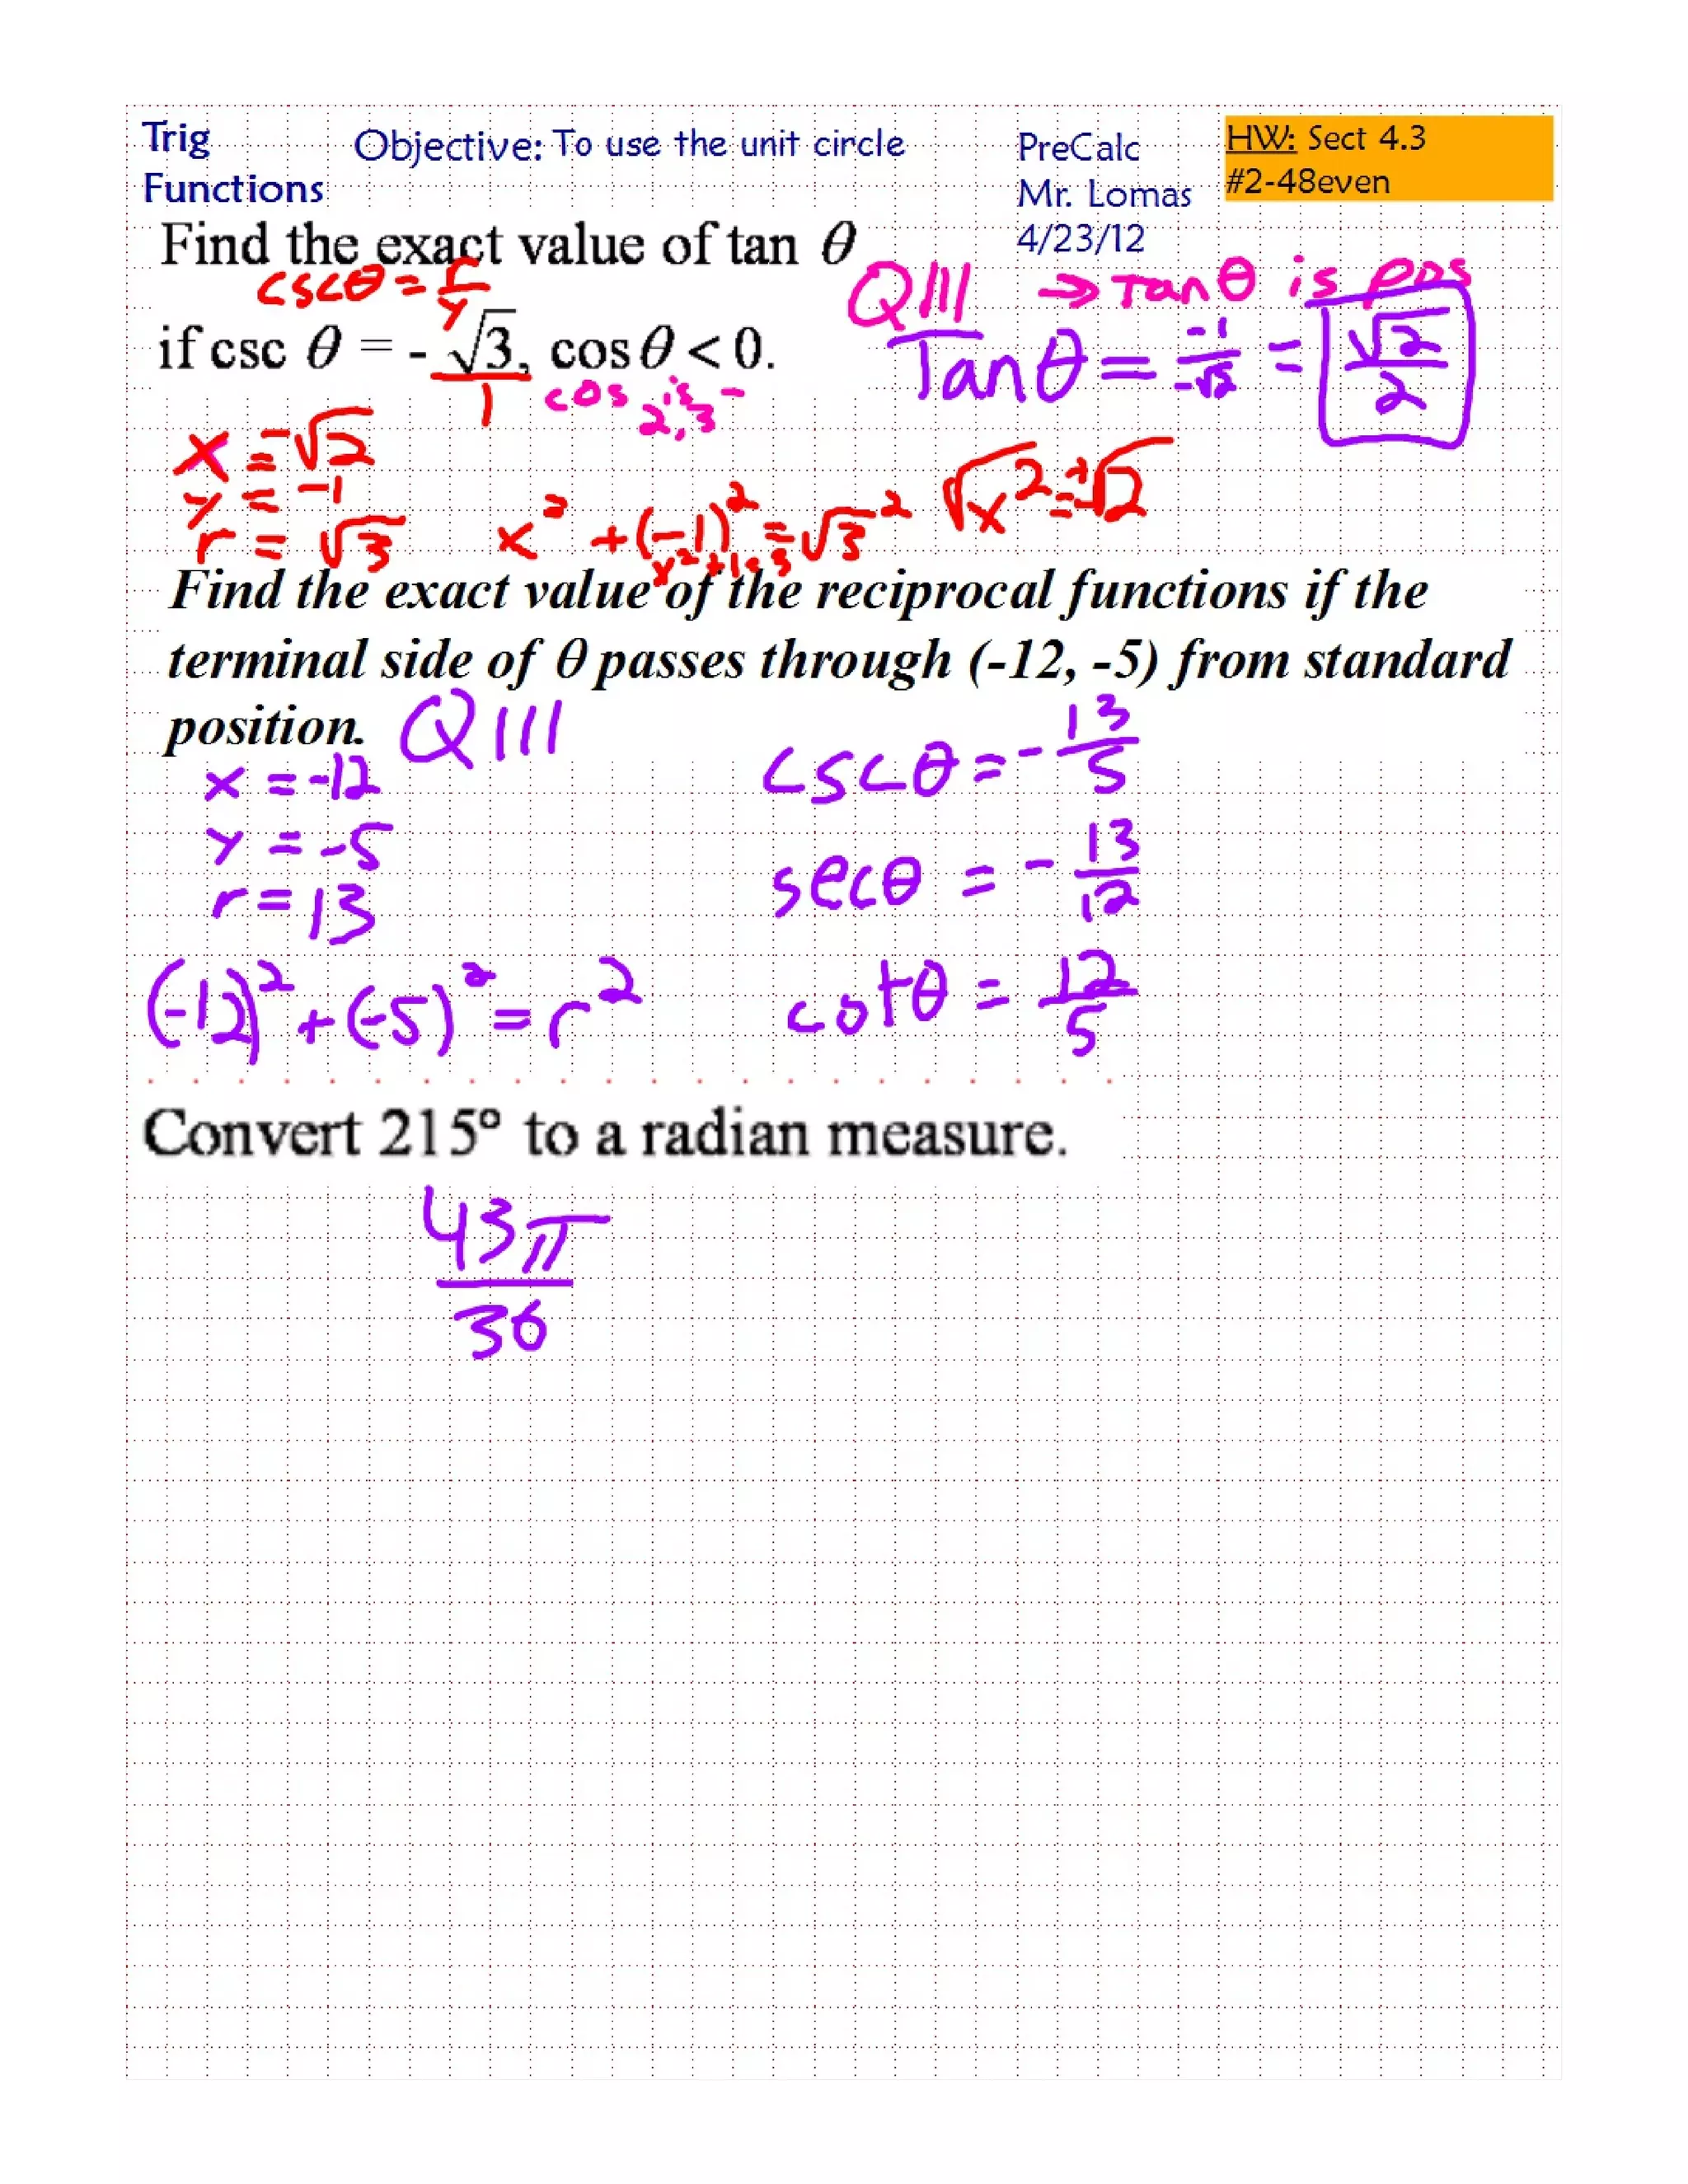 Trig Functions
Objective: To use the unit circle
PreCalc
Mr. Lomas
4/23/12
HW: Sect 4.3
#2-48even
Find the exact value of tan θ
cscθ = r/y
if csc θ = - √3, cos θ < 0.
1
cos is -
2,3
QIII → Tanθ is pos
Tanθ = -1/-√2 = √2/2
x = -√2
y = -1
r = √3
x² + (-1)² = √3²
x²+1=3
√x² = ±√2
Find the exact value of the reciprocal functions if the
terminal side of θ passes through (-12, -5) from standard
position.
QIII
x = -12
y = -5
r = 13
(-12)² + (-5)² = r²
cscθ = - 13/5
secθ = - 13/12
cotθ = 12/5
Convert 215° to a radian measure.
43π
36